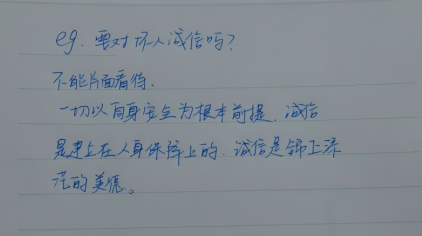 eg. 要对坏人诚信吗?
不能片面看待.
一切以自身安全为根本前提. 诚信
是建立在人身保障上的. 诚信是锦上添
花的美德。